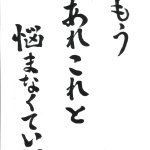 もう
あれこれと
悩まなくてい